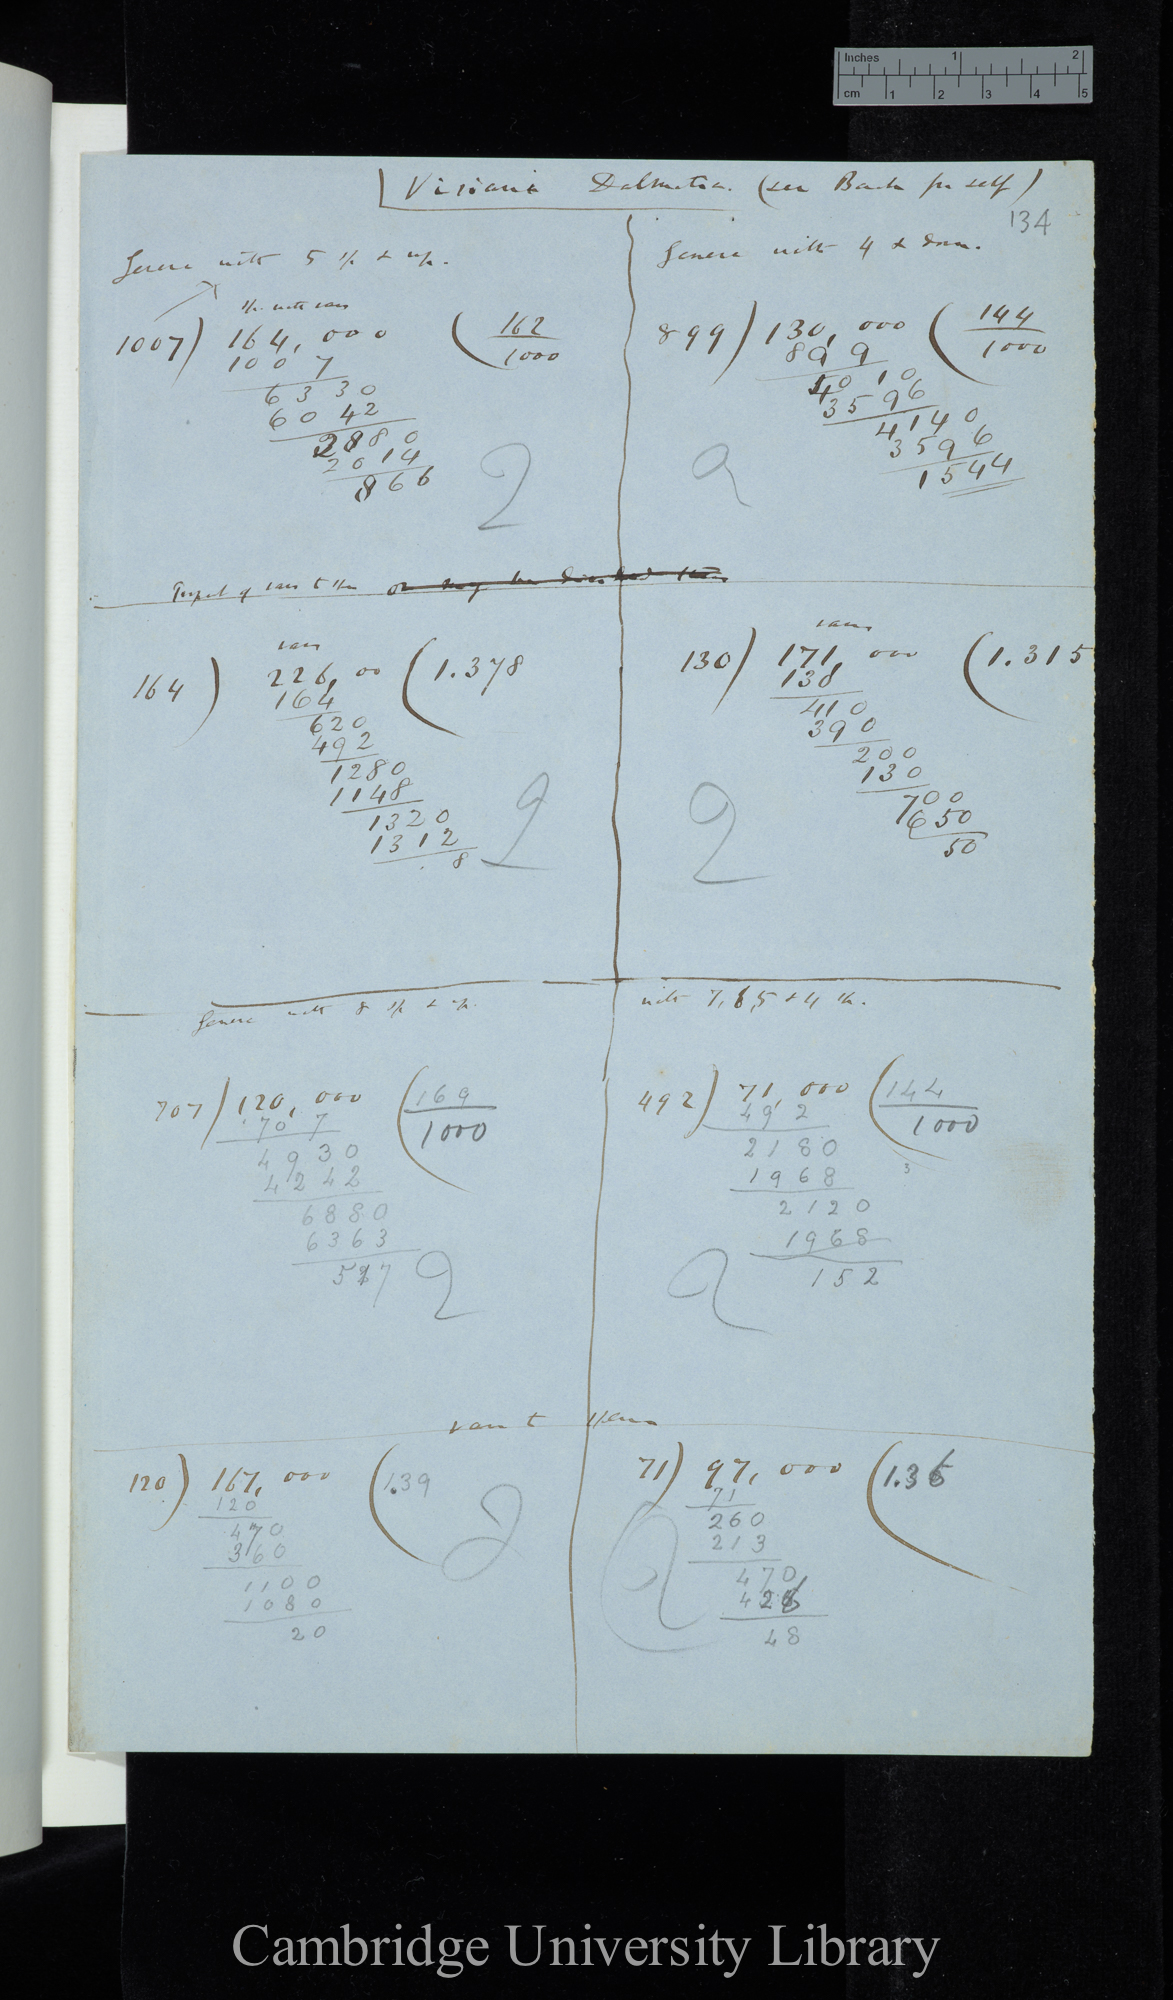 Inches 1 2
cm 1 2 3 4 5
Visiani Dalmatia. (see Back for self)
134
Genera with 5 sp & up.
sp. with vars
1007) 164, 000 (162
1000
1007
6330
6042
2880
2014
866
2
Genera with 4 & down.
899) 130, 000 (144
1000
899
4010
3596
4140
3596
1544
2
of vars to
vars
164) 226, 00 (1.378
164
620
492
1280
1148
1320
1312
8
2
vars
130) 171, 000 (1.315
130
410
390
200
130
700
650
50
2
Genera with 8 sp & up.
707) 120, 000 (169
1000
707
4930
4242
6880
6363
517
2
with 7, 6, 5 & 4 sp.
492) 71, 000 (144
1000
3
492
2180
1968
2120
1968
152
2
vars to
120) 167, 000 (1.39
120
470
360
1100
1080
20
2
71) 97, 000 (1.36
71
260
213
470
426
48
2
Cambridge University Library